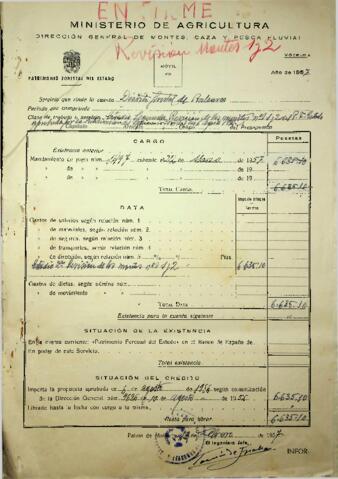 EN FIRME
MINISTERIO DE AGRICULTURA
DIRECCIÓN GENERAL DE MONTES, CAZA Y PESCA FLUVIAL
Revisión Montes 1 y 2
MÓVIL
PATRIMONIO FORESTAL DEL ESTADO
Año de 1957
Servicio que rinde la cuenta Distrito Forestal de Baleares
Período que comprende
Clase de trabajo o servicio
Capítulo Artículo del Presupuesto
CARGO
Pesetas
Existencia anterior
Mandamiento de pago núm. 1497 cobrado 22 de Marzo de 1957
6.635.10
de 19
de 19
Total Cargo
6.635.10
DATA
Gastos de salarios según relación núm. 1
de materiales, según relación núm. 2
de seguros, según relación núm. 3
de transportes, según relación núm. 4
de dirección, según Ptas.
Estudio 2ª Revisión de los montes nos 1 y 2
6.635.10
Gastos de dietas según nómina núm.
de movimiento
Total Data
6.635.10
Existencia para la cuenta siguiente
SITUACIÓN DE LA EXISTENCIA
En la cuenta corriente: «Patrimonio Forestal del Estado» en el Banco de España de
En poder de este Servicio.
Total existencia
SITUACIÓN DEL CRÉDITO
Importa la propuesta aprobada en 6 de agosto de 1956 según comunicación
de la Dirección General núm. de 10 de agosto de 1956.
6.635.10
Librado hasta la fecha con cargo a la misma.
Resta para librar
6.635.10
Palma de Mallorca de 1957
El Ingeniero Jefe,
INFOR-